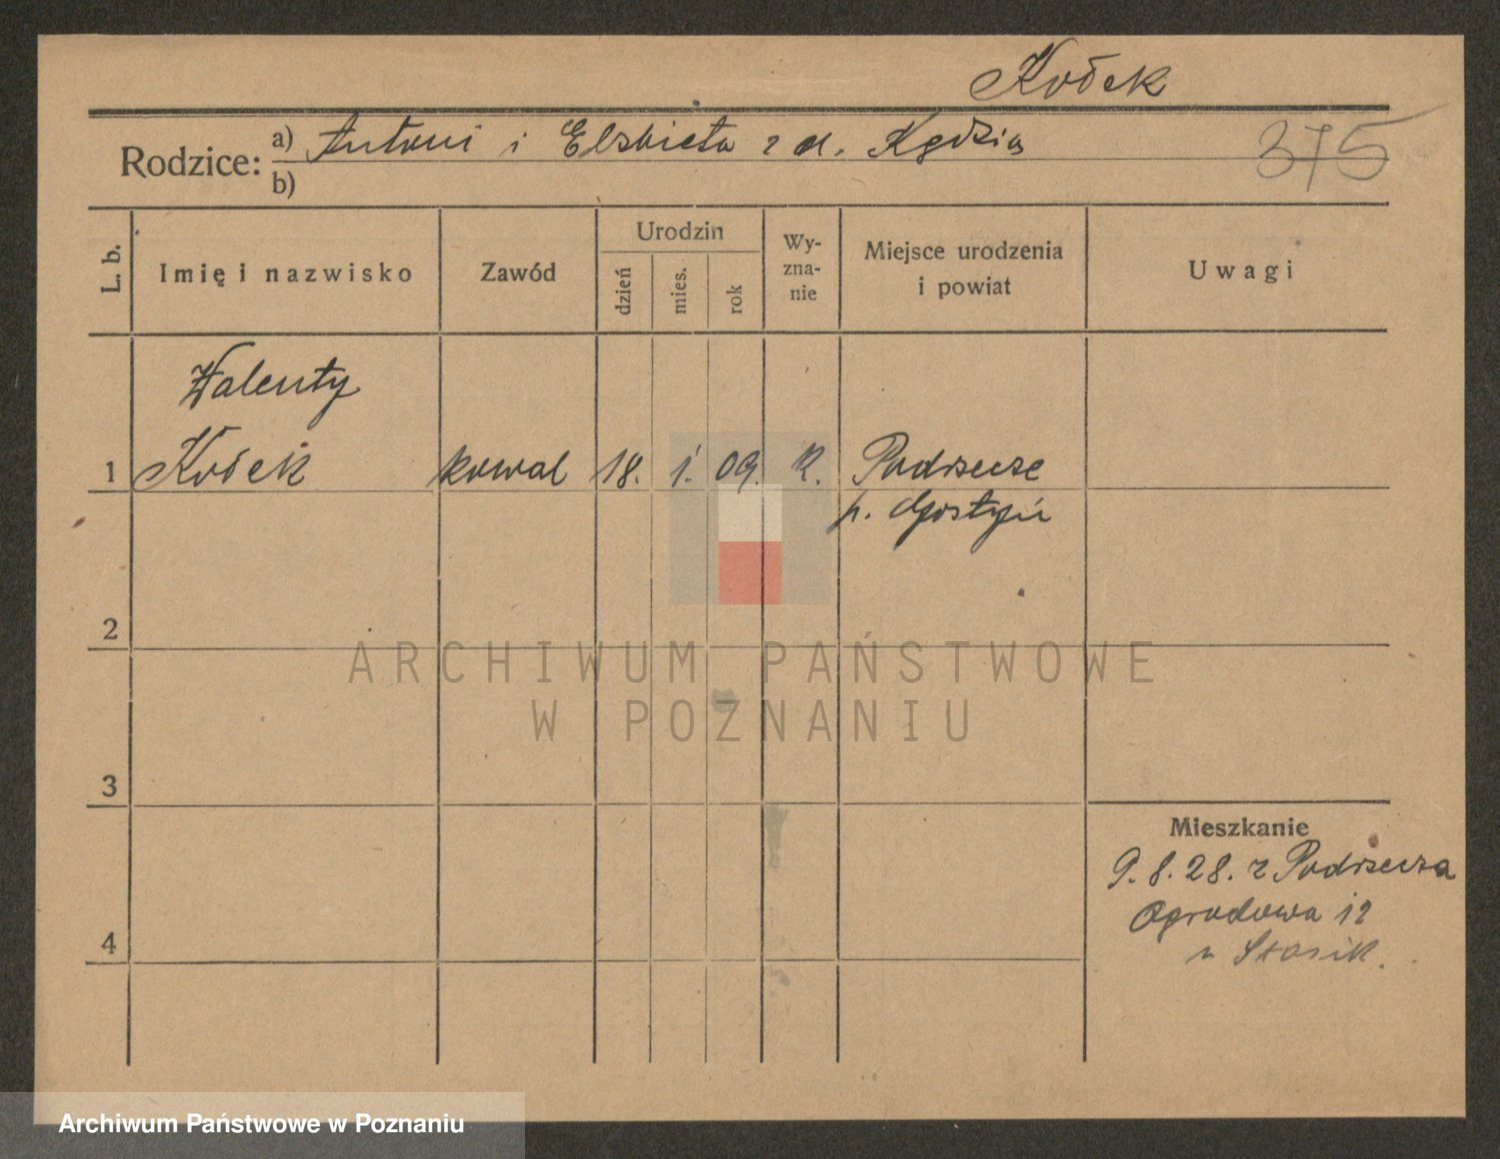 Kołek
Rodzice: a) Antoni i Elżbieta z d. Kędzia
b)
375
L. b.
Imię i nazwisko
Zawód
Urodzin
dzień
mies.
rok
Wy-
zna-
nie
Miejsce urodzenia
i powiat
Uwagi
Walenty
1 Kołek kowal 18. 1. 09. R. Podrzecze
p. Gostyń
2
3
4
Mieszkanie
9. 8. 28. z Podrzecza
Ogrodowa 12
u Stasik.
ARCHIWUM PAŃSTWOWE
W POZNANIU
Archiwum Państwowe w Poznaniu